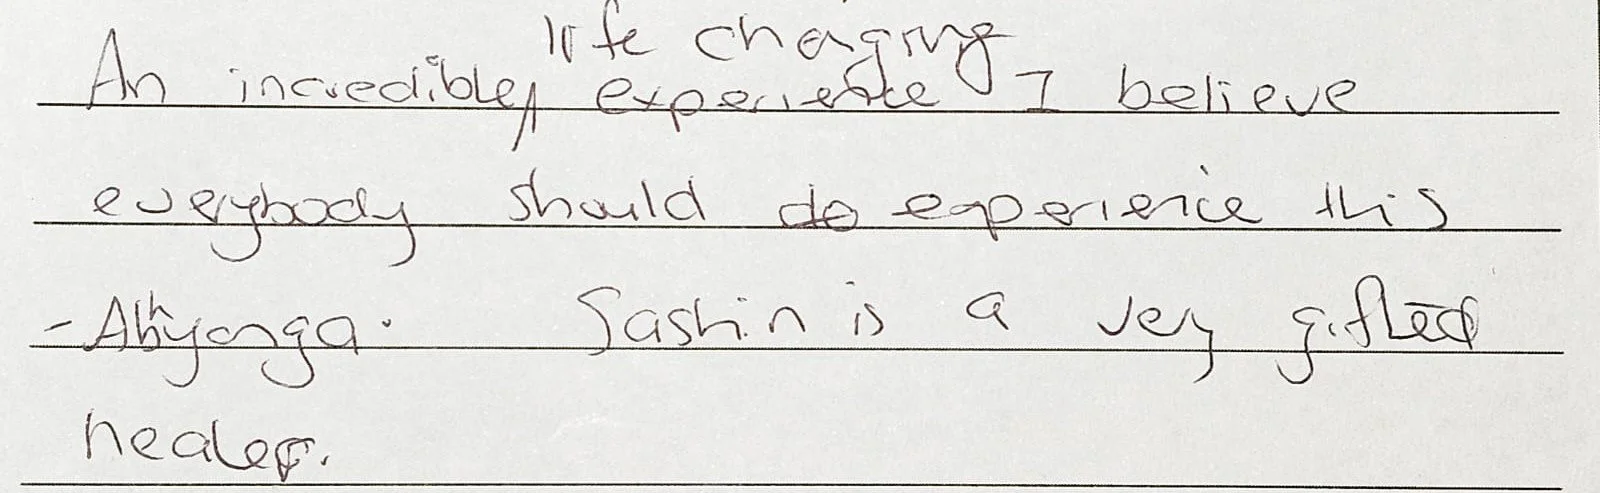 life changing
An incredible, experience I believe
everybody should do experience this
- Abhyanga. Sashin is a very gifted
healer.